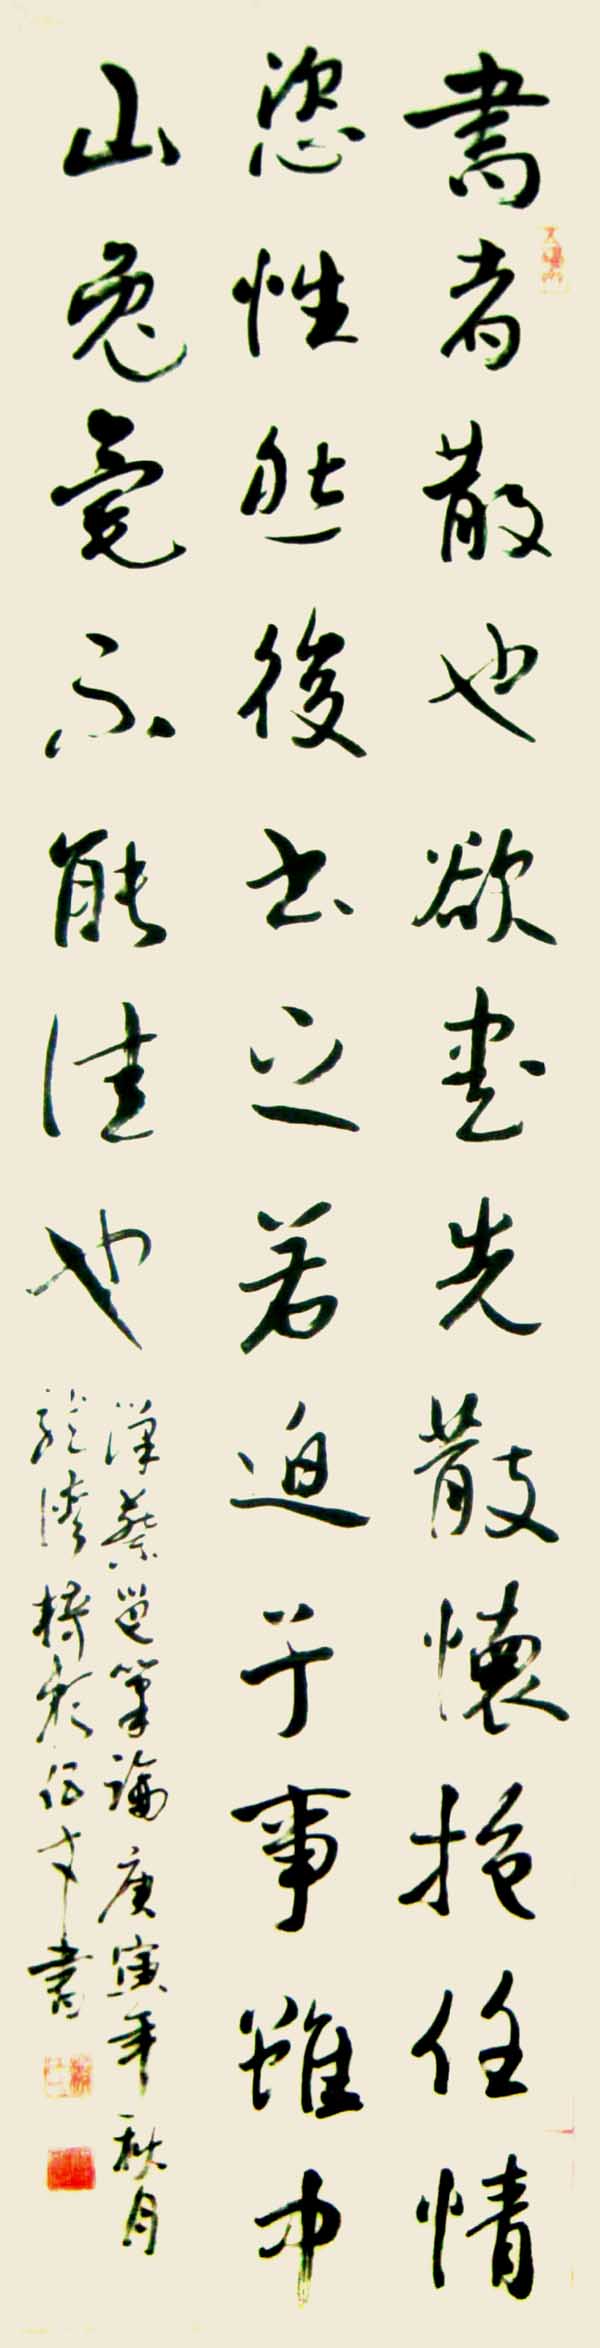 書者散也欲書先散懷抱任情
恣性然後書之若迫于事雖中
山兔毫不能佳也
漢蔡邕筆論庚寅年秋月
書